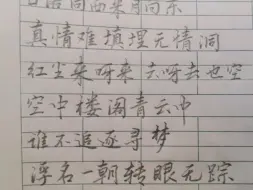 日落向西来月向东
真情难填埋无情洞
红尘来呀来 去呀去也空
空中楼阁青云中
谁不追逐寻梦
浮名一朝转眼无踪